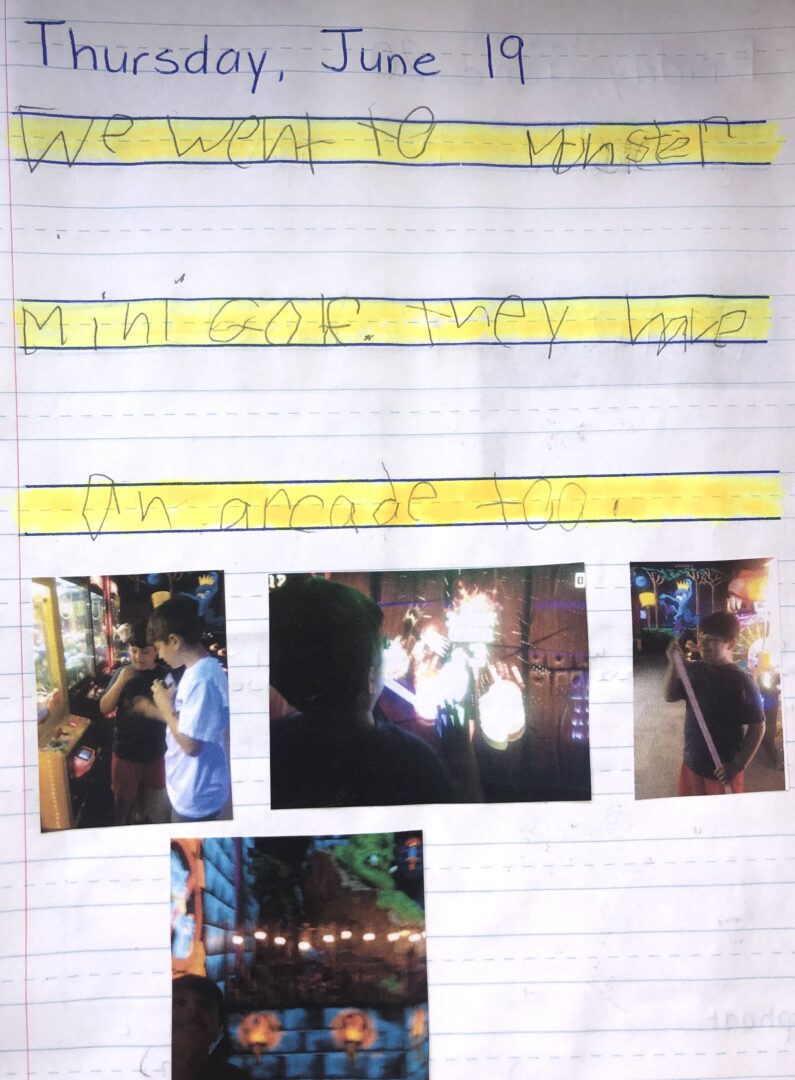 Thursday, June 19
We went to Monster
Mini GOlF. they have
An arcade too.
17
0